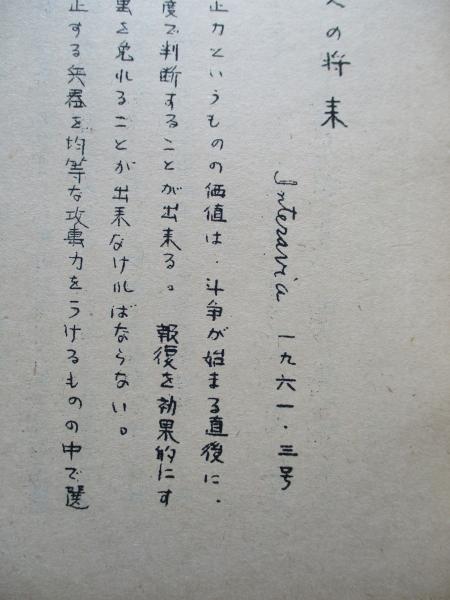 への将来
Interavia 一九六一・三号
止力というものの価値は、斗争が始まる直後に、
度で判断することが出来る。 報復を効果的にす
を免れることが出来なければならない。
止する兵器を均等な攻撃力をうけるものの中で選